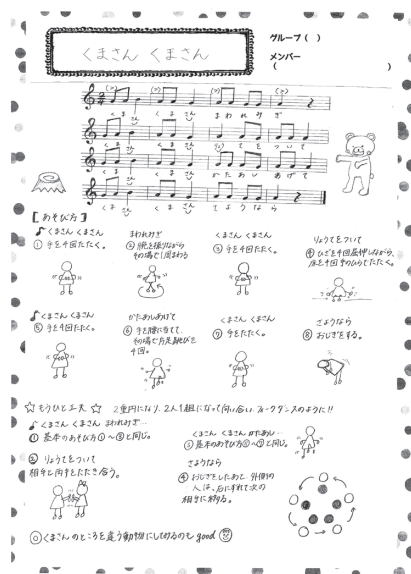 くまさん くまさん
グループ( )
メンバー
( )
くま さん くま さん まわれみぎ
くま さん くま さん りょうてをついて
くま さん くま さん かたあしあげて
くま さん くま さん さようなら
【あそび方】
♪くまさん くまさん
①手を4回たたく。
まわれみぎ
②腕を振りながら
その場で1周まわる
くまさん くまさん
③手を4回たたく。
りょうてをついて
④ひざを4回屈伸しながら、
床を4回手のひらでたたく。
♪くまさん くまさん
⑤手を4回たたく。
かたあしあげて
⑥手を腰に当てて、
その場で片足跳びを
4回。
くまさん くまさん
⑦手をたたく。
さようなら
⑧おじぎをする。
☆もうひと工夫☆ 2重円になり、2人1組になって向い合い、フォークダンスのように!!
♪くまさん くまさん まわれみぎ…
①基本のあそび方①〜③と同じ。
②りょうてをついて
相手と両手をたたき合う。
くまさん くまさん かたあし…
③基本のあそび方⑤〜⑦と同じ。
さようなら
④おじぎをしたあと、外側の
人は、右にずれて次の
相手に移る。
◎くまさんのところを違う動物にしてみるのもgood